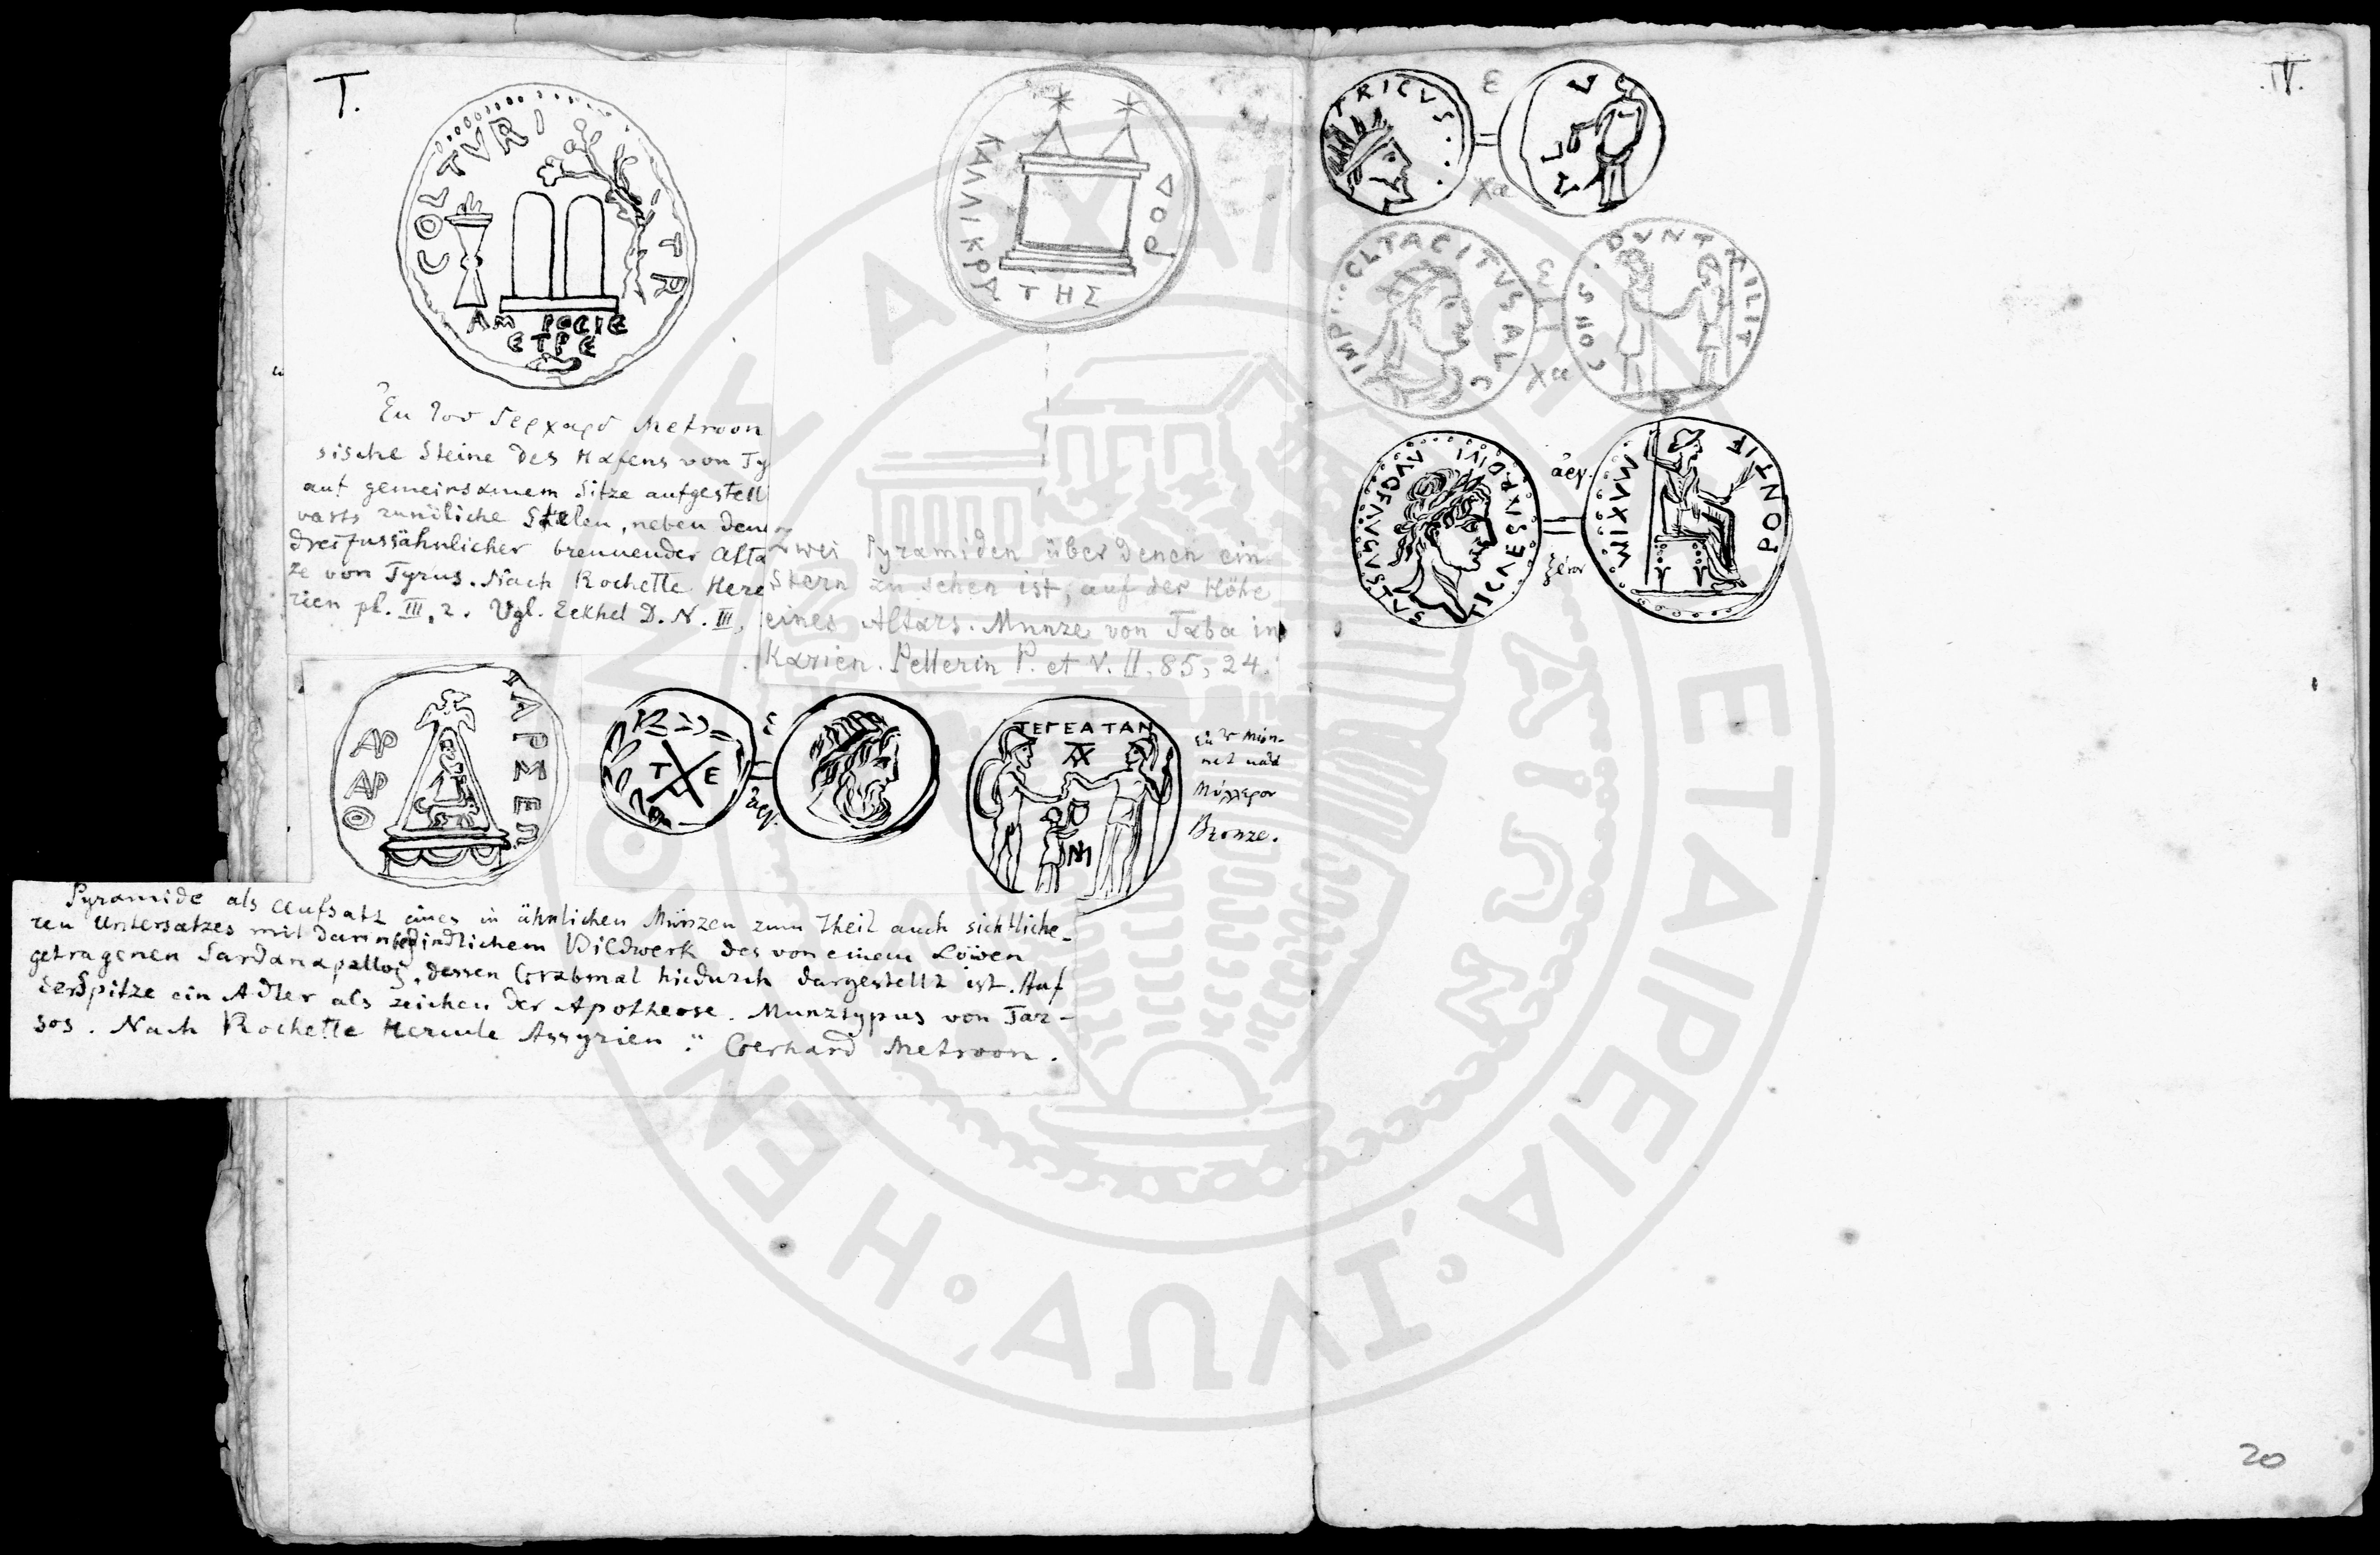 T.
COL TVRI
TR
AM ΡΟCΙЄ
ЄΤΡЄ
Metroon
sische Steine des Hafens von Ty
auf gemeinsamem Sitze aufgestell
Stelen, neben denen
dreifussähnlicher brennender Alta
ze von Tyrus. Nach Rochette Herc
rien pl. III, 2. Vgl. Eckhel D. N. III,
ΚΑΛΛΙΚΡΑΤΗΣ
ΔΟΡ
zwei Pyramiden über denen ein
Stern zu sehen ist, auf der Höhe
eines Altars. Munze von Taba in
Karien. Pellerin P. et V. II, 85, 24.
ΤΑΡΣΕΩ
ΑΡ
ΑΡ
Θ
Τ Ε
ε
ἀργ.
ΤΕΓΕΑΤΑΝ
Bronze.
Pyramide als Aufsatz eines in ähnlichen Münzen zum Theil auch sichtliche-
ren Untersatzes mit darin befindlichem Bildwerk des von einem Löwen
getragenen Sardanapallos, dessen Grabmal hiedurch dargestellt ist. Auf
der Spitze ein Adler als zeichen der Apotheose. Munztypus von Tar-
sos. Nach Rochette Hercule Assyrien." Gerhard Metroon.
IV.
TRICVS
ε
χα
V
L
I
IMP CLTACITVSAVG
ε
χα
COHS
ἀργ.
TICAESARDIVI
AVGFAVGVSTVS
PONTIF
MAXIM
20
ΕΤΑΙΡΕΙΑ